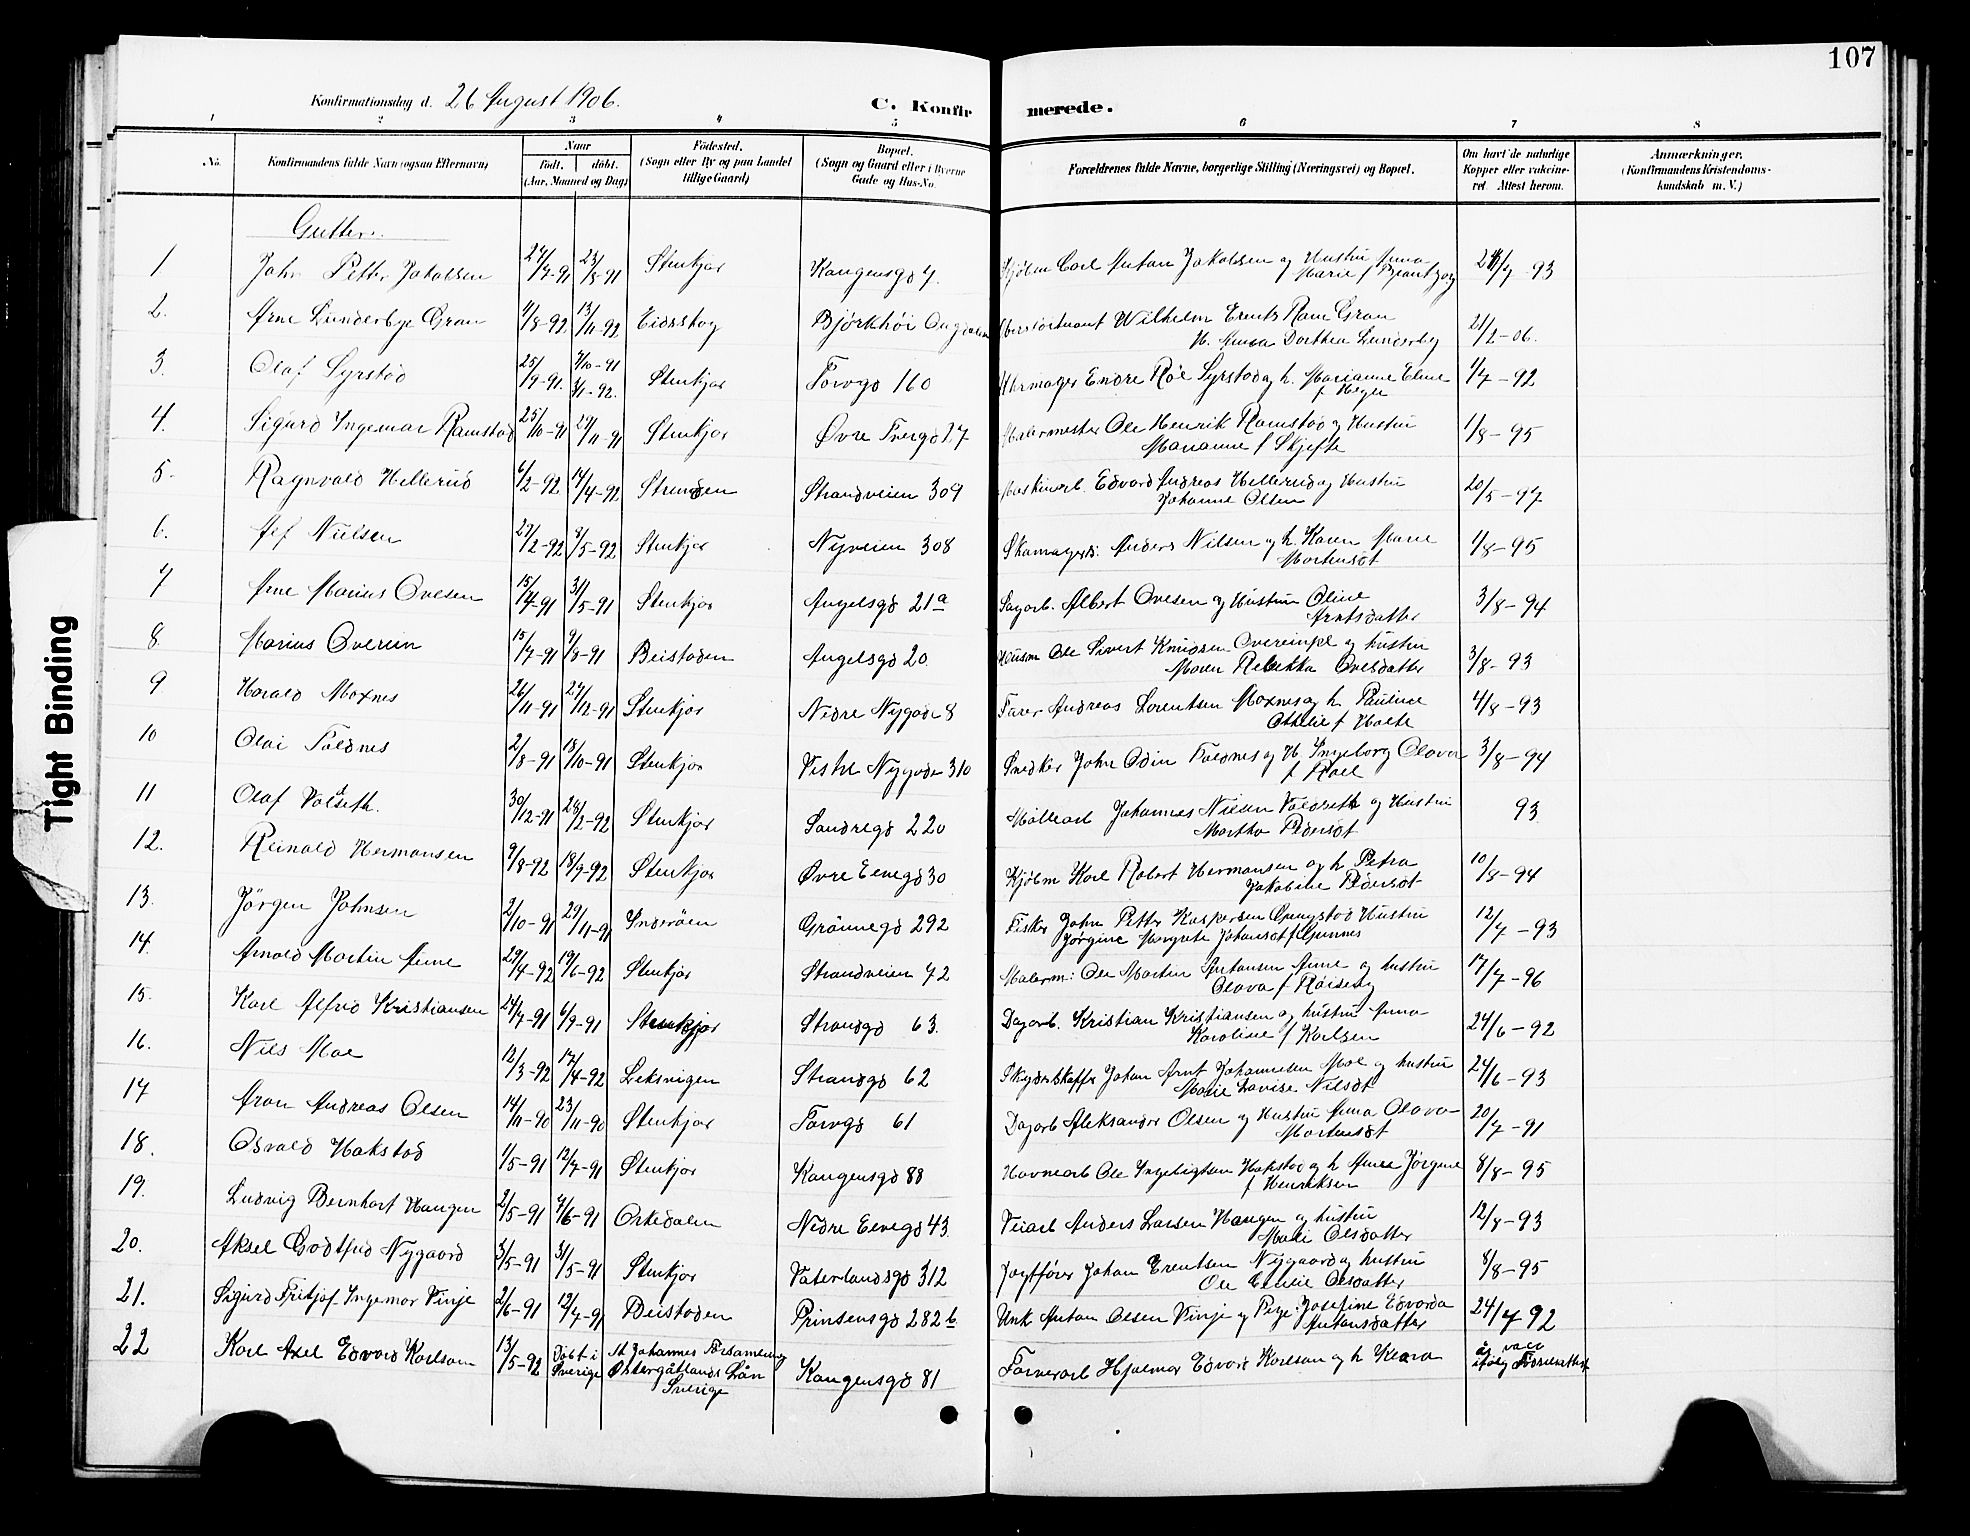 107
Konfirmationsdag d. 26 August 1906.
C. Konfirmerede.
1 2 3 4 5 6 7 8
No.
Konfirmandens fulde Navn (ogsaa Efternavn)
Naar
født. døbt.
(Aar, Maaned og Dag)
Fødested.
(Sogn eller By og paa Landet
tillige Gaard)
Bopæl.
(Sogn og Gaard eller i Byerne
Gade og Hus-No.
Forældrenes fulde Navne, borgerlige Stilling (Næringsvei) og Bopæl.
Om havt de naturlige
Kopper eller vakcine-
ret. Attest herom.
Anmærkninger.
(Konfirmandens Kristendoms-
kundskab m. V.)
Gutter.
1 John Petter Jakobsen 27/7-91 23/8-91 Stenkjær Kongensgd 7. Carl Anton Jakobsen og Hustru Anna
Marie f 93
2. Arne Lunderbye Gran 1/8-92 13/11-92 Eidsskog Bjørkhøi Wilhelm Gran
H. Anna Dorthea Lunderby 21/2-06.
3. Olaf Syrstad 25/9-91. 4/10-91
3/1-92. Stenkjær Torvgd 160 Uhrmager Endre Røe Syrstad og h. Marianne Eline
f Heger 1/7-92
4. Sigurd Ingemar Ramstad 25/10-91 29/11-91 Stenkjær Øvre Tvergd 27 Malermester Ole Henrik Ramstad og Hustru
Marianne f Skjefte 1/8-95
5. Ragnvald Hellerud 6/2-92 14/4-92 Strinden Strandveien 309 Maskinarb. Edvard Andreas Hellerud og Hustru
Johanne Olsen 20/5-97
6. Alf Nielsen 27/2-92 9/5-92 Stenkjær Nyveien 308 Skomagers: Anders Nilsen og h. Karen Marie
Mortensdt 1/8-95
7 Arne Marius Ovesen 15/4-91 31/5-91 Stenkjær Angelsgd 21a Sagarb. Albert Ovesen og Hustru Oline
Arntsdatter 3/8-94
8. Marius Overein 15/7-91 9/8-91 Beistaden Angelsgd 20. Husm Ole Sivert Knudsen Overeinpl og hustru
Maren Rebekka Ovesdatter 3/8-93
9 Harald Moxnes 26/11-91 27/12-91 Stenkjær Nedre Nygade 8 Farer Andreas Lorentsen Moxnes og h Pauline
Othelie f Holte 4/8-93
10 Olai Foldnes 2/8-91 18/10-91 Stenkjær Vestre Nygade 310 Snedker John Odin Foldnes og H. Ingeborg Olava
f Roel 3/8-94
11 Olaf Valseth. 30/12-91 28/2-92 Stenkjær Søndregd 220 Møllearb Johannes Nilsen Valdseth og Hustru
Martha Pedersdt 93
12. Reinald Hermansen 9/8-92 18/9-92 Stenkjær Øvre Elvegd 30 Kjøbm Karl Robert Hermansen og h. Petra
Jakobine Pedersdt 10/8-94
13. Jørgen Johnsen 2/10-91 29/11-91 Inderøen Grønnegd 292 Fisker John Petter Kaspersen Hustru
Jørgine Margrete Johansdt f 12/7-93
14. Arnold Martin Aune 29/4-92 19/6-92 Stenkjær Strandveien 72 Malerm: Ole Martin Antonsen Aune og hustru
Olava f Røiseng 17/7-96
15. Karl Alfrid Kristiansen 24/7-91 6/9-91 Stenkjær Strandgd 63. Dagarb. Kristian Kristiansen og hustru Anna
Karoline f Karlsen 24/6-92
16. Nils Moe 12/3-92 17/4-92 Leksvigen Strandgd 62 Skydsskaffer Johan Arnt Johannesen Moe og hustru
Marie Lovise Nilsdt 24/6-93
17 Aron Andreas Olsen 14/11-90 23/11-90 Stenkjær Torvgd 61 Dagarb Aleksander Olsen og Hustru Anna Olava
Mortensdt 20/7-91
18. Osvald Hakstad 1/5-91 12/7-91 Stenkjær Kongensgd 88 Havnearb Ole Ingebrigtsen Hakstad og h Anna Jørgine
f Henriksen 8/8-95
19. Ludvig Bernhart Haugen 2/5-91 7/6-91 Orkedalen Nedre Elvegd 43. Veiarb Anders Larsen Haugen og hustru
Mali Olsdatter 12/8-93
20. Aksel Godtfred Nygaard 3/5-91 31/5-91 Stenkjær Vaterlandsgd 312 Jagtfører Johan Erentsen Nygaard og hustru
Olsdatter 8/8-95
21. Sigurd Fritjof Ingemar Vinje 2/6-91 12/7-91 Beistaden Prinsensgd 282b Unk Anton Olsen Vinje og Pige: Josefine Edvarda
Antonsdatter 24/7 92
22 Karl Axel Edvard Karlson 13/5-92 Døbt i
Sverige St Johannes Församling
Østergötlands Län
Sverige Kongensgd 81 Farverarb Hjalmar Edvard Karlson og h Klara
Tight Binding